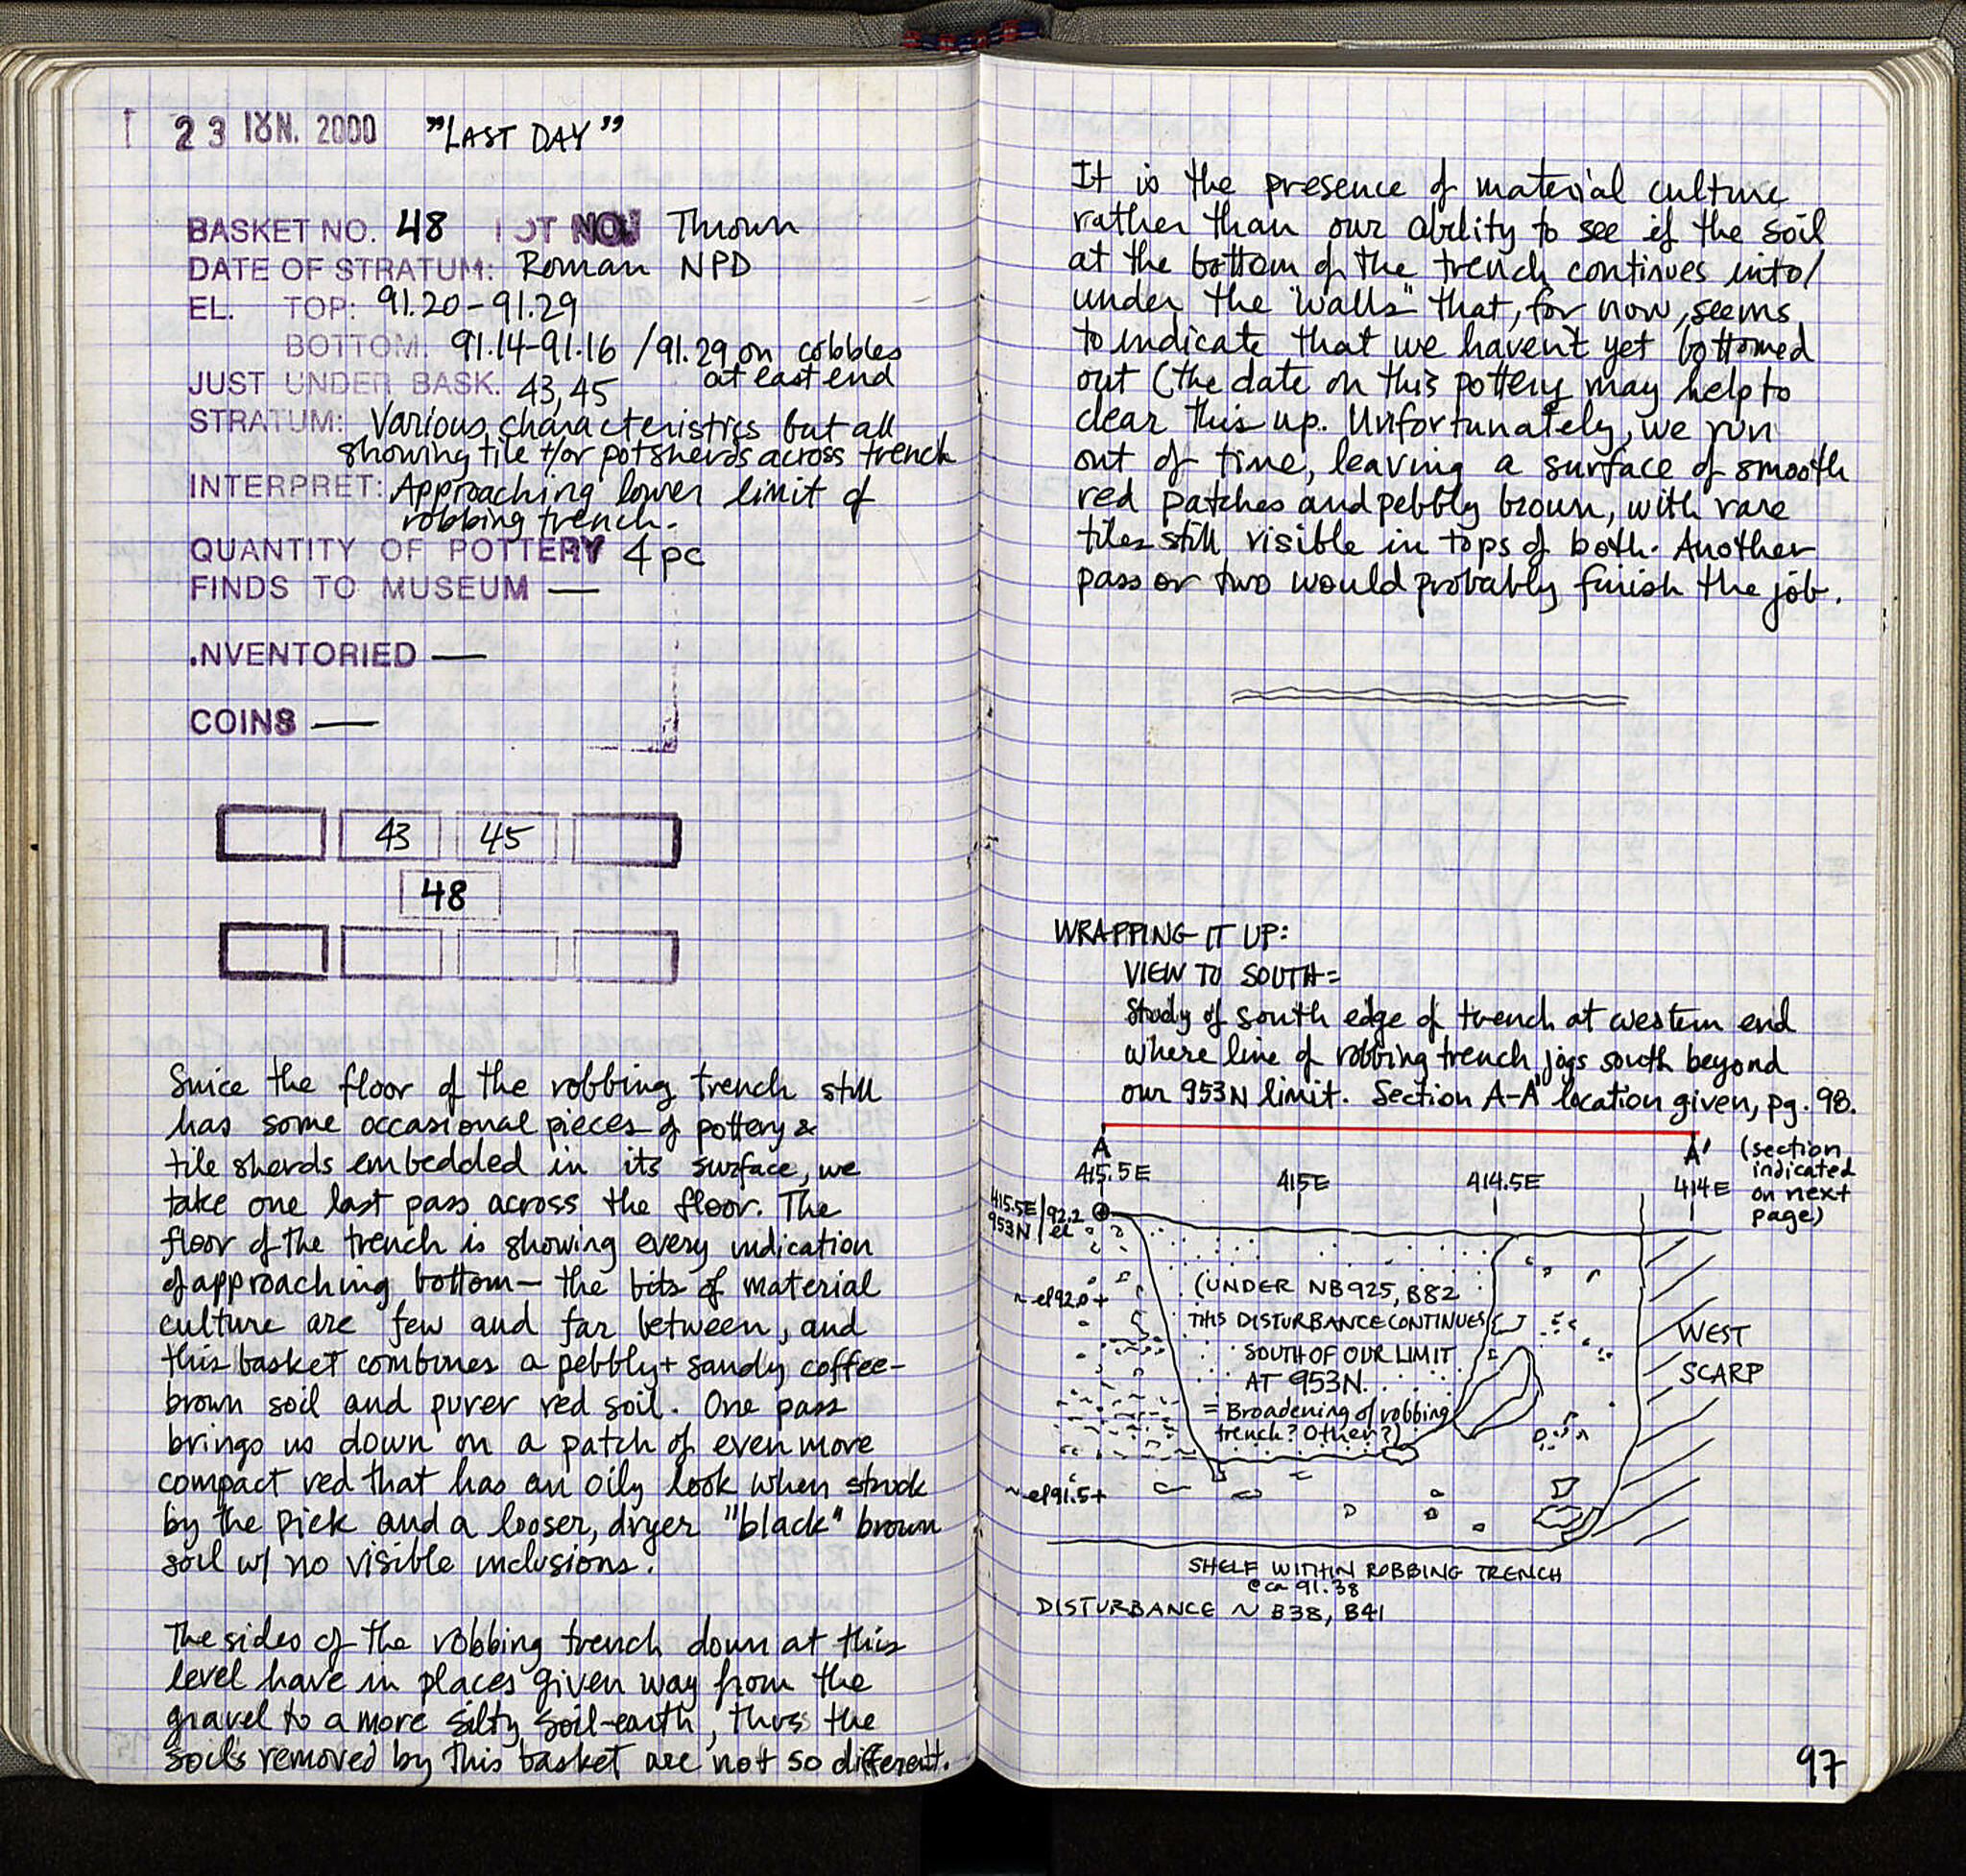 23 ΙΟΥΝ. 2000 "LAST DAY"
BASKET NO. 48 LOT NOU Thrown
DATE OF STRATUM: Roman NPD
EL. TOP: 91.20-91.29
BOTTOM: 91.14-91.16 /91.29 on cobbles
at east end
JUST UNDER BASK. 43,45
STRATUM: Various characteristics but all
showing tile +/or potsherds across trench
INTERPRET: Approaching lower limit of
robbing trench.
QUANTITY OF POTTERY 4 pc
FINDS TO MUSEUM —
.NVENTORIED —
COINS —
43 45
48
Since the floor of the robbing trench still
has some occasional pieces of pottery &
tile sherds embedded in its surface, we
take one last pass across the floor. The
floor of the trench is showing every indication
of approaching bottom — the bits of material
culture are few and far between, and
this basket combines a pebbly + sandy coffee-
brown soil and purer red soil. One pass
brings us down on a patch of even more
compact red that has an oily look when struck
by the pick and a looser, dryer "black" brown
soil w/ no visible inclusions.
The sides of the robbing trench down at this
level have in places given way from the
gravel to a more silty soil-earth, thus the
soils removed by this basket are not so different.
It is the presence of material culture
rather than our ability to see if the soil
at the bottom of the trench continues into/
under the "walls" that, for now, seems
to indicate that we haven't yet bottomed
out (the date on this pottery may help to
clear this up. Unfortunately, we run
out of time, leaving a surface of smooth
red patches and pebbly brown, with rare
tiles still visible in tops of both. Another
pass or two would probably finish the job.
WRAPPING IT UP:
VIEW TO SOUTH =
Study of south edge of trench at western end
where line of robbing trench jogs south beyond
our 953N limit. Section A-A' location given, pg. 98.
A A' (section
indicated
on next
page)
415.5E 415E 414.5E 414E
415.5E/92.2
953N/el
~el92.0+
(UNDER NB925, B82
THIS DISTURBANCE CONTINUES
SOUTH OF OUR LIMIT
AT 953N.
= Broadening of robbing
trench? Other?)
WEST
SCARP
~el91.5+
SHELF WITHIN ROBBING TRENCH
@ ca 91.38
DISTURBANCE ~ B38, B41
97